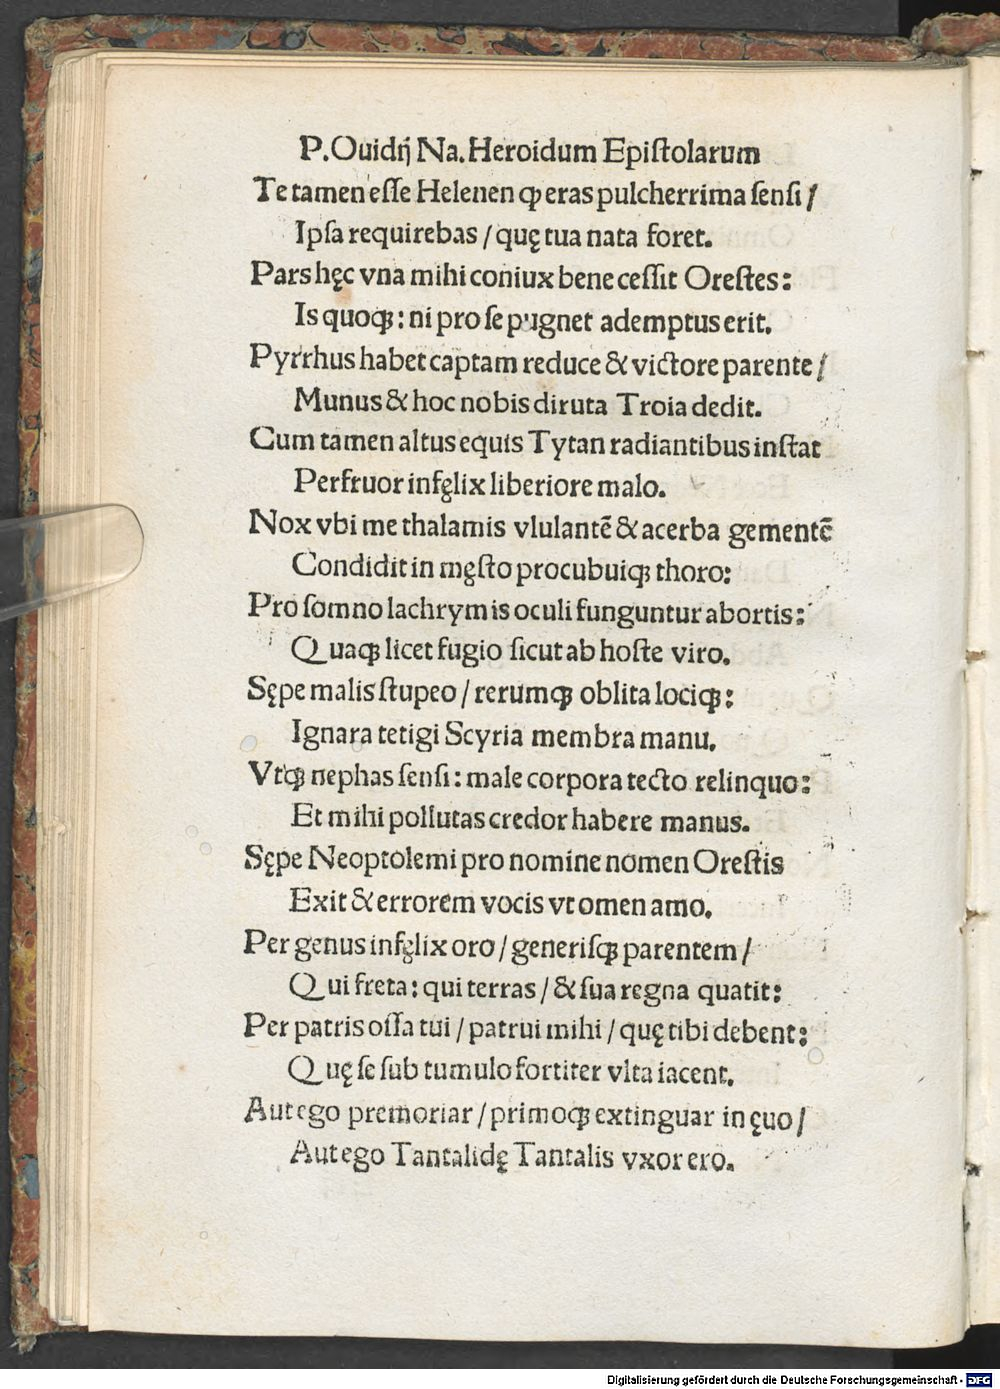 P.Ouidĳ Na. Heroidum Epiſtolarum
Te tamen eſſe Helenen ꝙ eras pulcherrima ſenſi /
Ipſa requirebas / quę tua nata foret.
Pars hęc vna mihi coniux bene ceſſit Oreſtes:
Is quoqꝫ: ni pro ſe pugnet ademptus erit.
Pyrrhus habet captam reduce & victore parente /
Munus & hoc nobis diruta Troia dedit.
Cum tamen altus equis Tytan radiantibus inſtat
Perfruor infęlix liberiore malo.
Nox vbi me thalamis vlulantē & acerba gementē
Condidit in męſto procubuiqꝫ thoro:
Pro ſomno lachrymis oculi funguntur abortis:
Quaqꝫ licet fugio ſicut ab hoſte viro.
Sępe malis ſtupeo / rerumqꝫ oblita lociqꝫ:
Ignara tetigi Scyria membra manu.
Vtqꝫ nephas ſenſi: male corpora tecto relinquo:
Et mihi pollutas credor habere manus.
Sępe Neoptolemi pro nomine nomen Oreſtis
Exit & errorem vocis vt omen amo.
Per genus infęlix oro / generiſqꝫ parentem /
Qui freta: qui terras / & ſua regna quatit:
Per patris oſſa tui / patrui mihi / quę tibi debent:
Quę ſe ſub tumulo fortiter vlta iacent.
Aut ego premoriar / primoqꝫ extinguar in ęuo /
Aut ego Tantalidę Tantalis vxor ero.
Digitalisierung gefördert durch die Deutsche Forschungsgemeinschaft - DFG